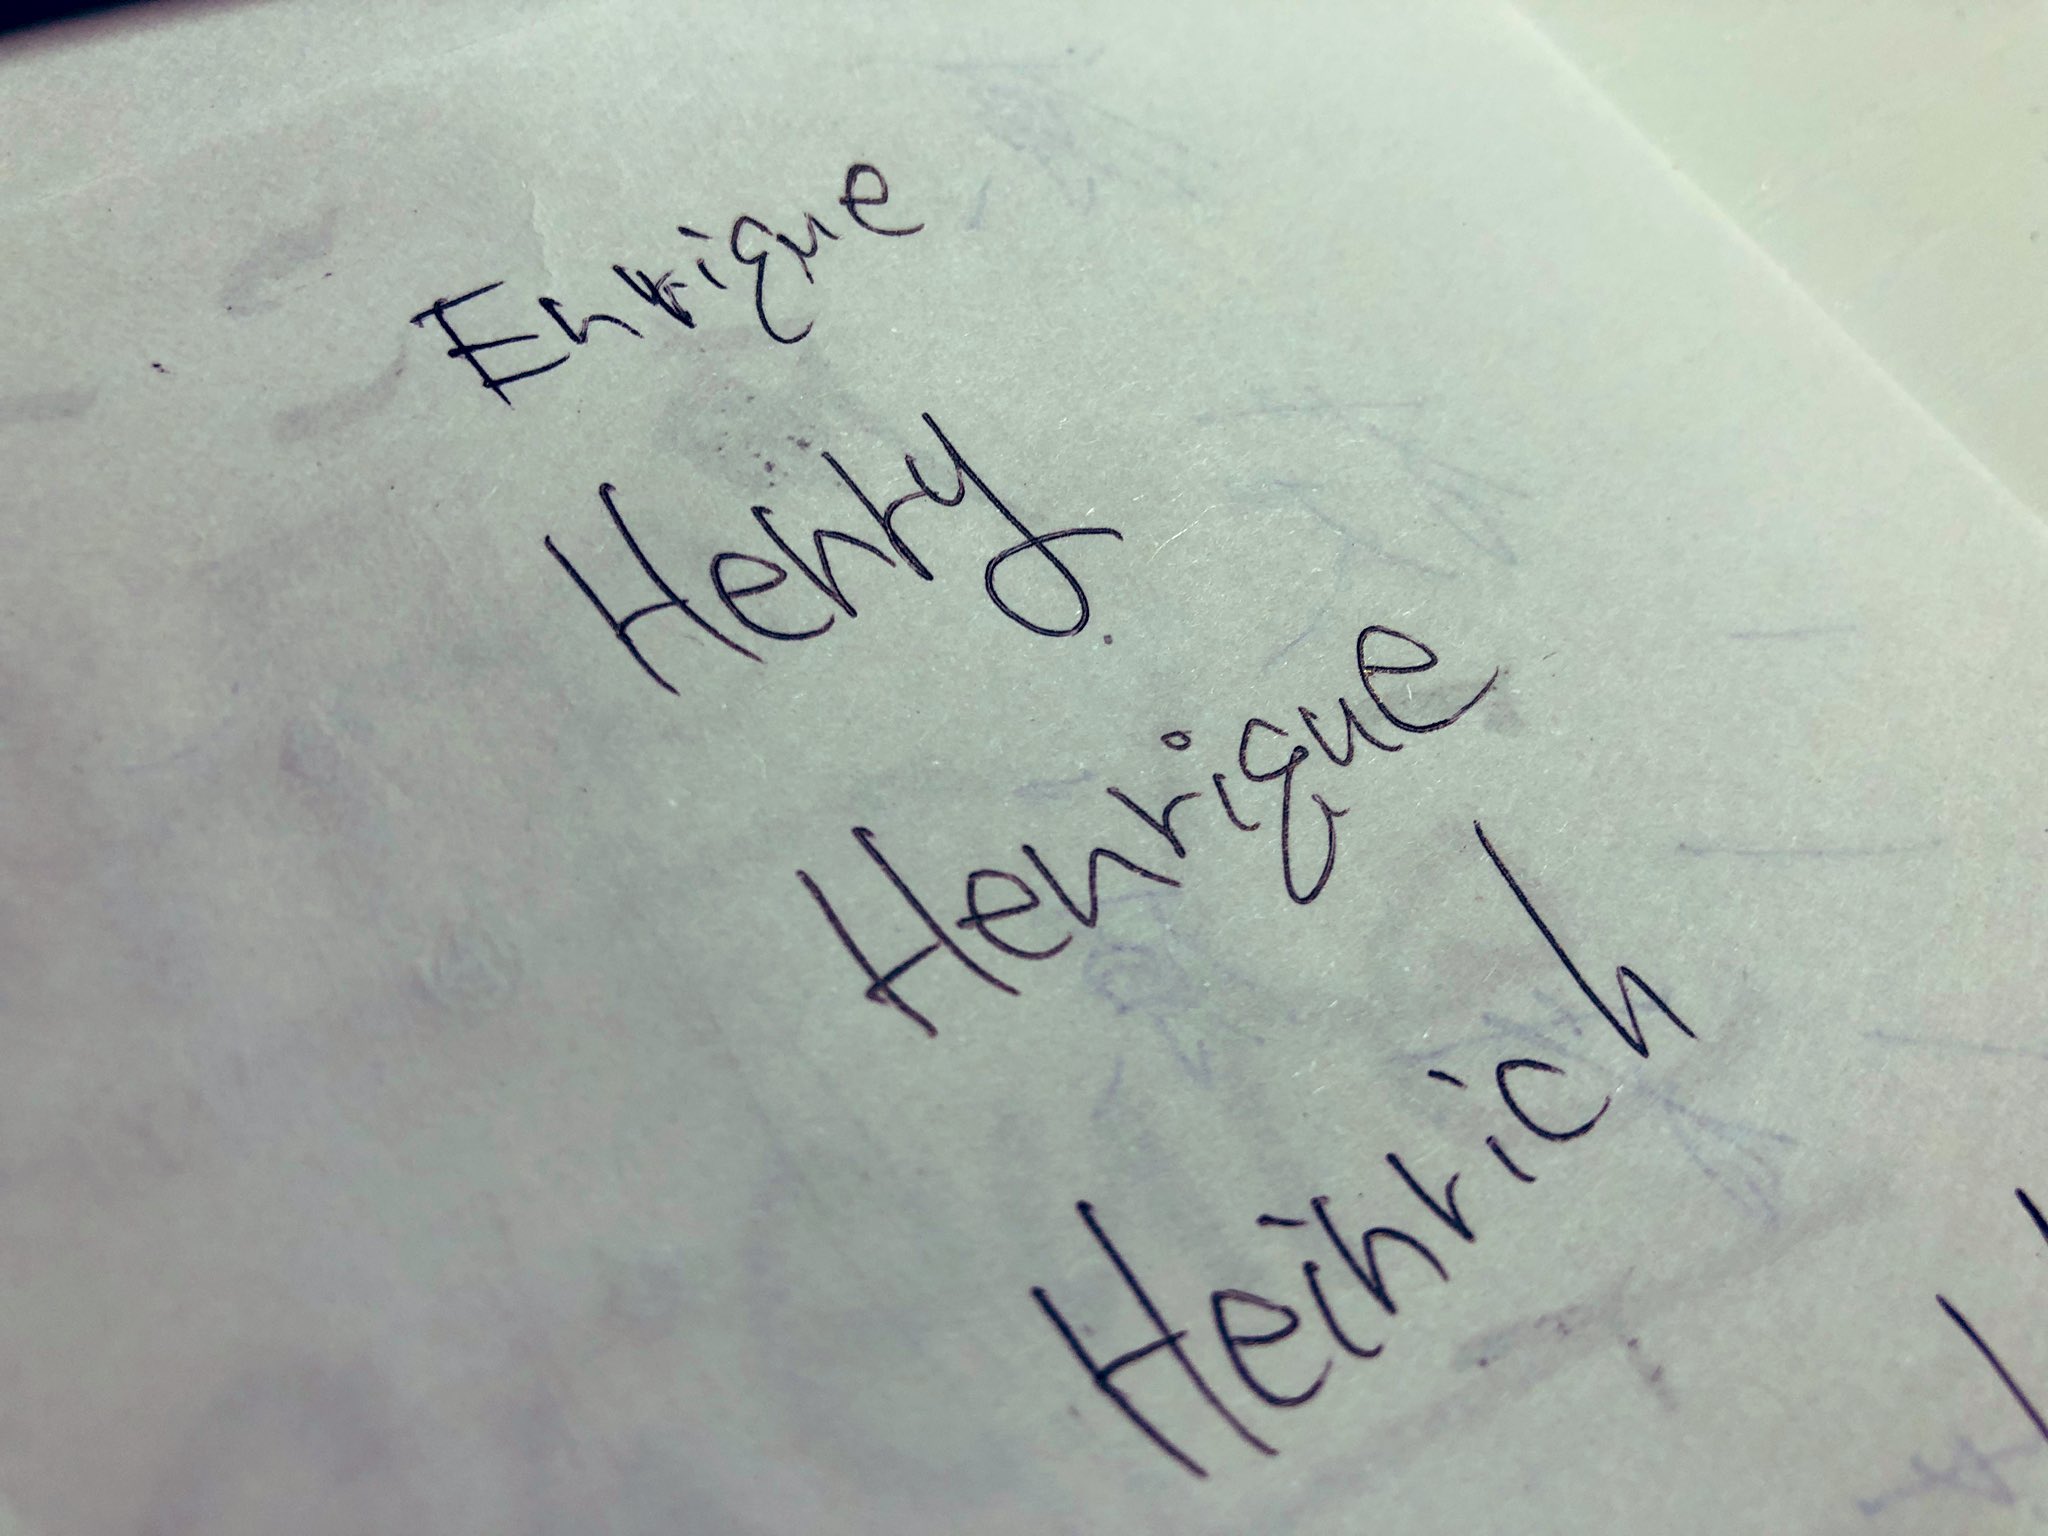 Enrique
Henry
Henrique
Heinrich